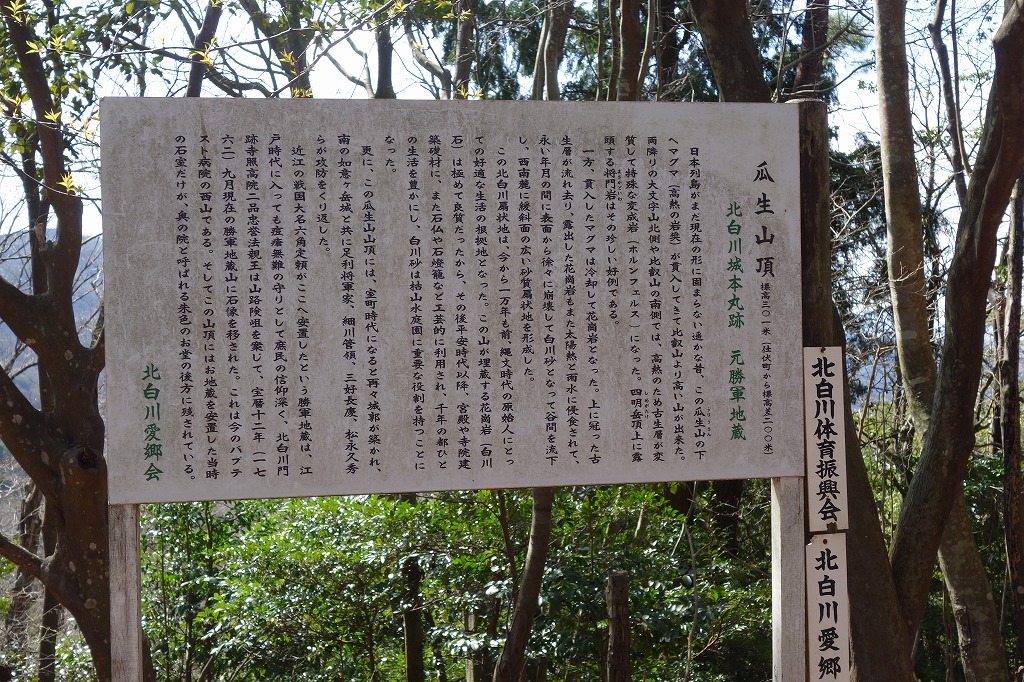 瓜生山頂 標高三〇一米(仕伏町から標高差二〇〇米)
北白川城本丸跡 元勝軍地蔵
日本列島がまだ現在の形に固まらない遥かな昔、この瓜生山の下
へマグマ(高熱の岩漿)が貫入してきて比叡山より高い山が出来た。
両隣りの大文字山北側や比叡山の南側では、高熱のため古生層が変
質して特殊な変成岩(ホルンフェルス)になった。四明岳頂上に露
頭する将門岩はその珍しい好例である。
一方、貫入したマグマは冷却して花崗岩となった。上に冠った古
生層が流れ去り、露出した花崗岩もまた太陽熱と雨水に侵食されて、
永い年月の間に表面から徐々に崩壊して白川砂となって谷間を流下
し、西南麓に緩斜面の広い砂質扇状地を形成した。
この北白川扇状地は、今から一万年も前、縄文時代の原始人にとっ
ての好適な生活の根拠地となった。この山が埋蔵する花崗岩(白川
石)は極めて良質だったから、その後平安時代以降、宮殿や寺院建
築礎材に、また石仏や石燈籠など工芸的に利用され、千年の都びと
の生活を豊かにし、白川砂は枯山水庭園に重要な役割を持つことに
なった。
更に、この瓜生山山頂には、室町時代になると再々城郭が築かれ、
南の如意ヶ岳城と共に足利将軍家、細川管領、三好長慶、松永久秀
らが攻防をくり返した。
近江の戦国大名六角定頼がここへ安置したという勝軍地蔵は、江
戸時代に入っても痘瘡無難の守りとして庶民の信仰深く、北白川門
跡寺照高院二品忠誉法親王は山路険岨を案じて、宝暦十二年(一七
六二)九月現在の勝軍地蔵山に石像を移された。これは今のバプテ
スト病院の西山である。そしてこの山頂にはお地蔵を安置した当時
の石室だけが、奥の院と呼ばれる朱色のお堂の後方に残されている。
北白川愛郷会
北白川体育振興会
北白川愛郷